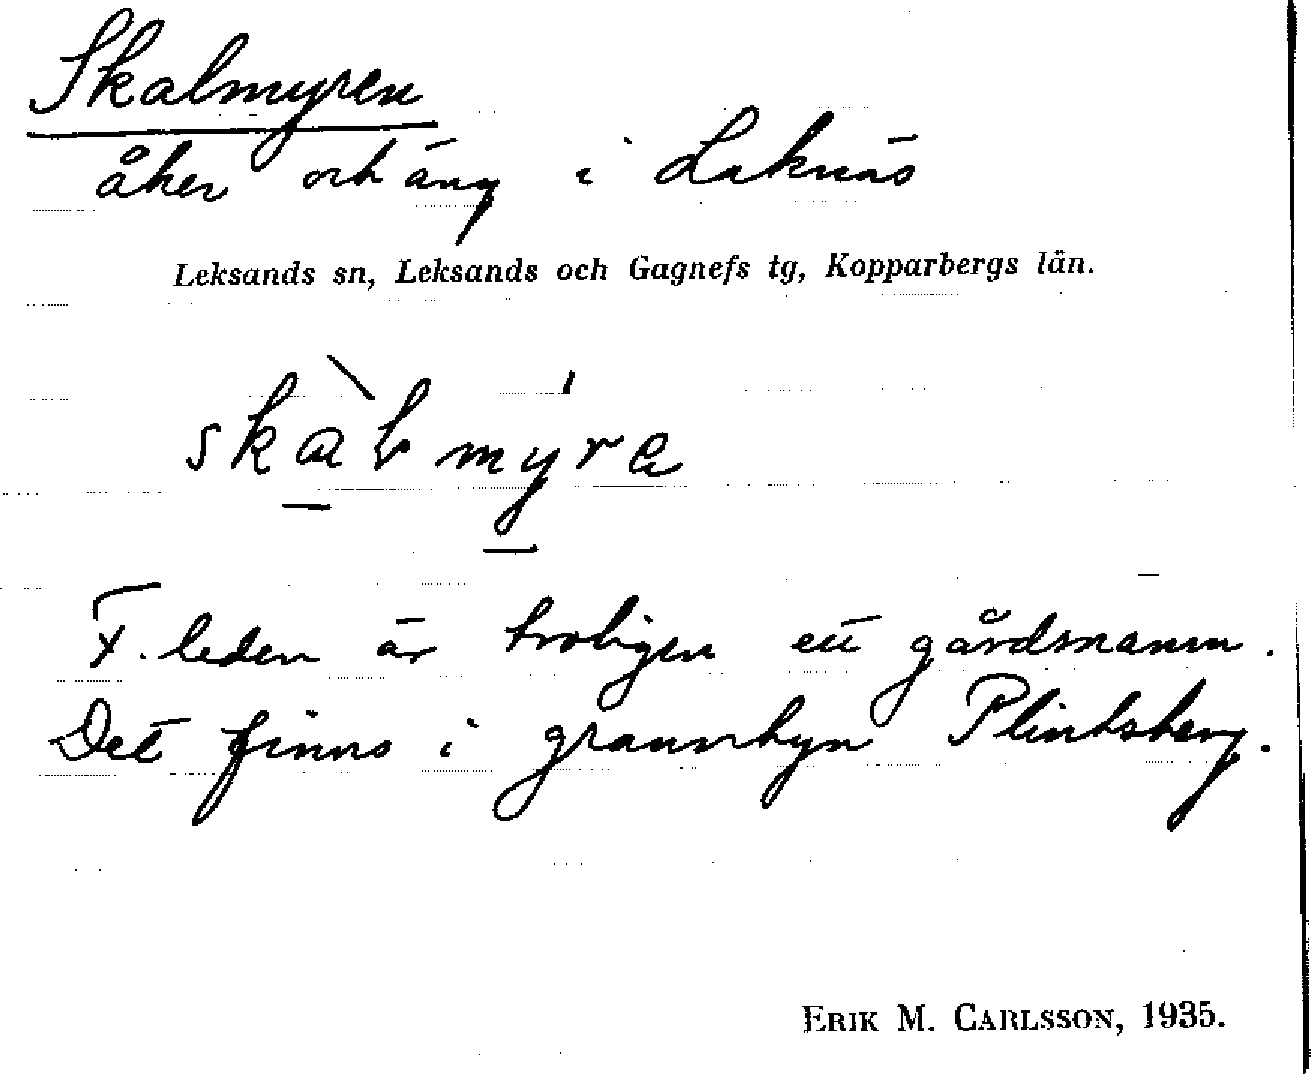 Skalmyren
åker och äng i Laknäs
Leksands sn, Leksands och Gagnefs tg, Kopparbergs län.
skalmyra
F. leden är troligen ett gårdsnamn.
Det finns i grannbyn Plintsberg.
ERIK M. CARLSSON, 1935.